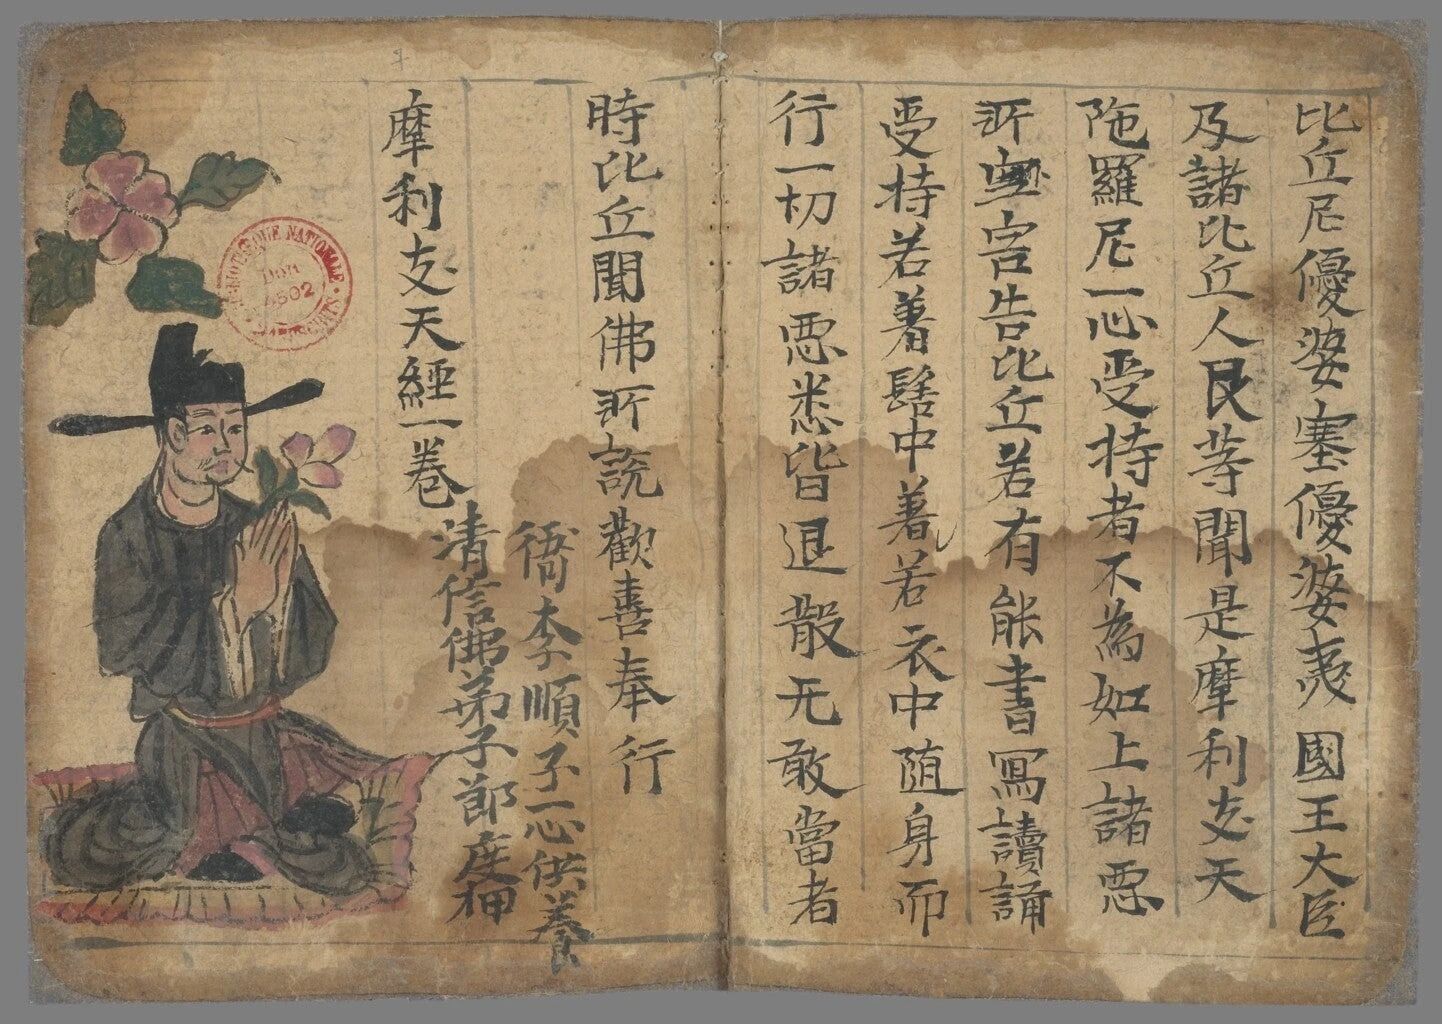 比丘尼優婆塞優婆夷國王大臣
及諸比丘人民等聞是摩利支天
陁羅尼一心受持者不為如上諸惡
所害告比丘若有能書寫讀誦
受持若著髻中著若衣中随身而
行一切諸惡悉皆退散无敢當者
時比丘聞佛所說歡喜奉行
摩利支天經一卷
李順子一心供養
清信佛弟子節度押
衙
NATIONALE
Don
4502